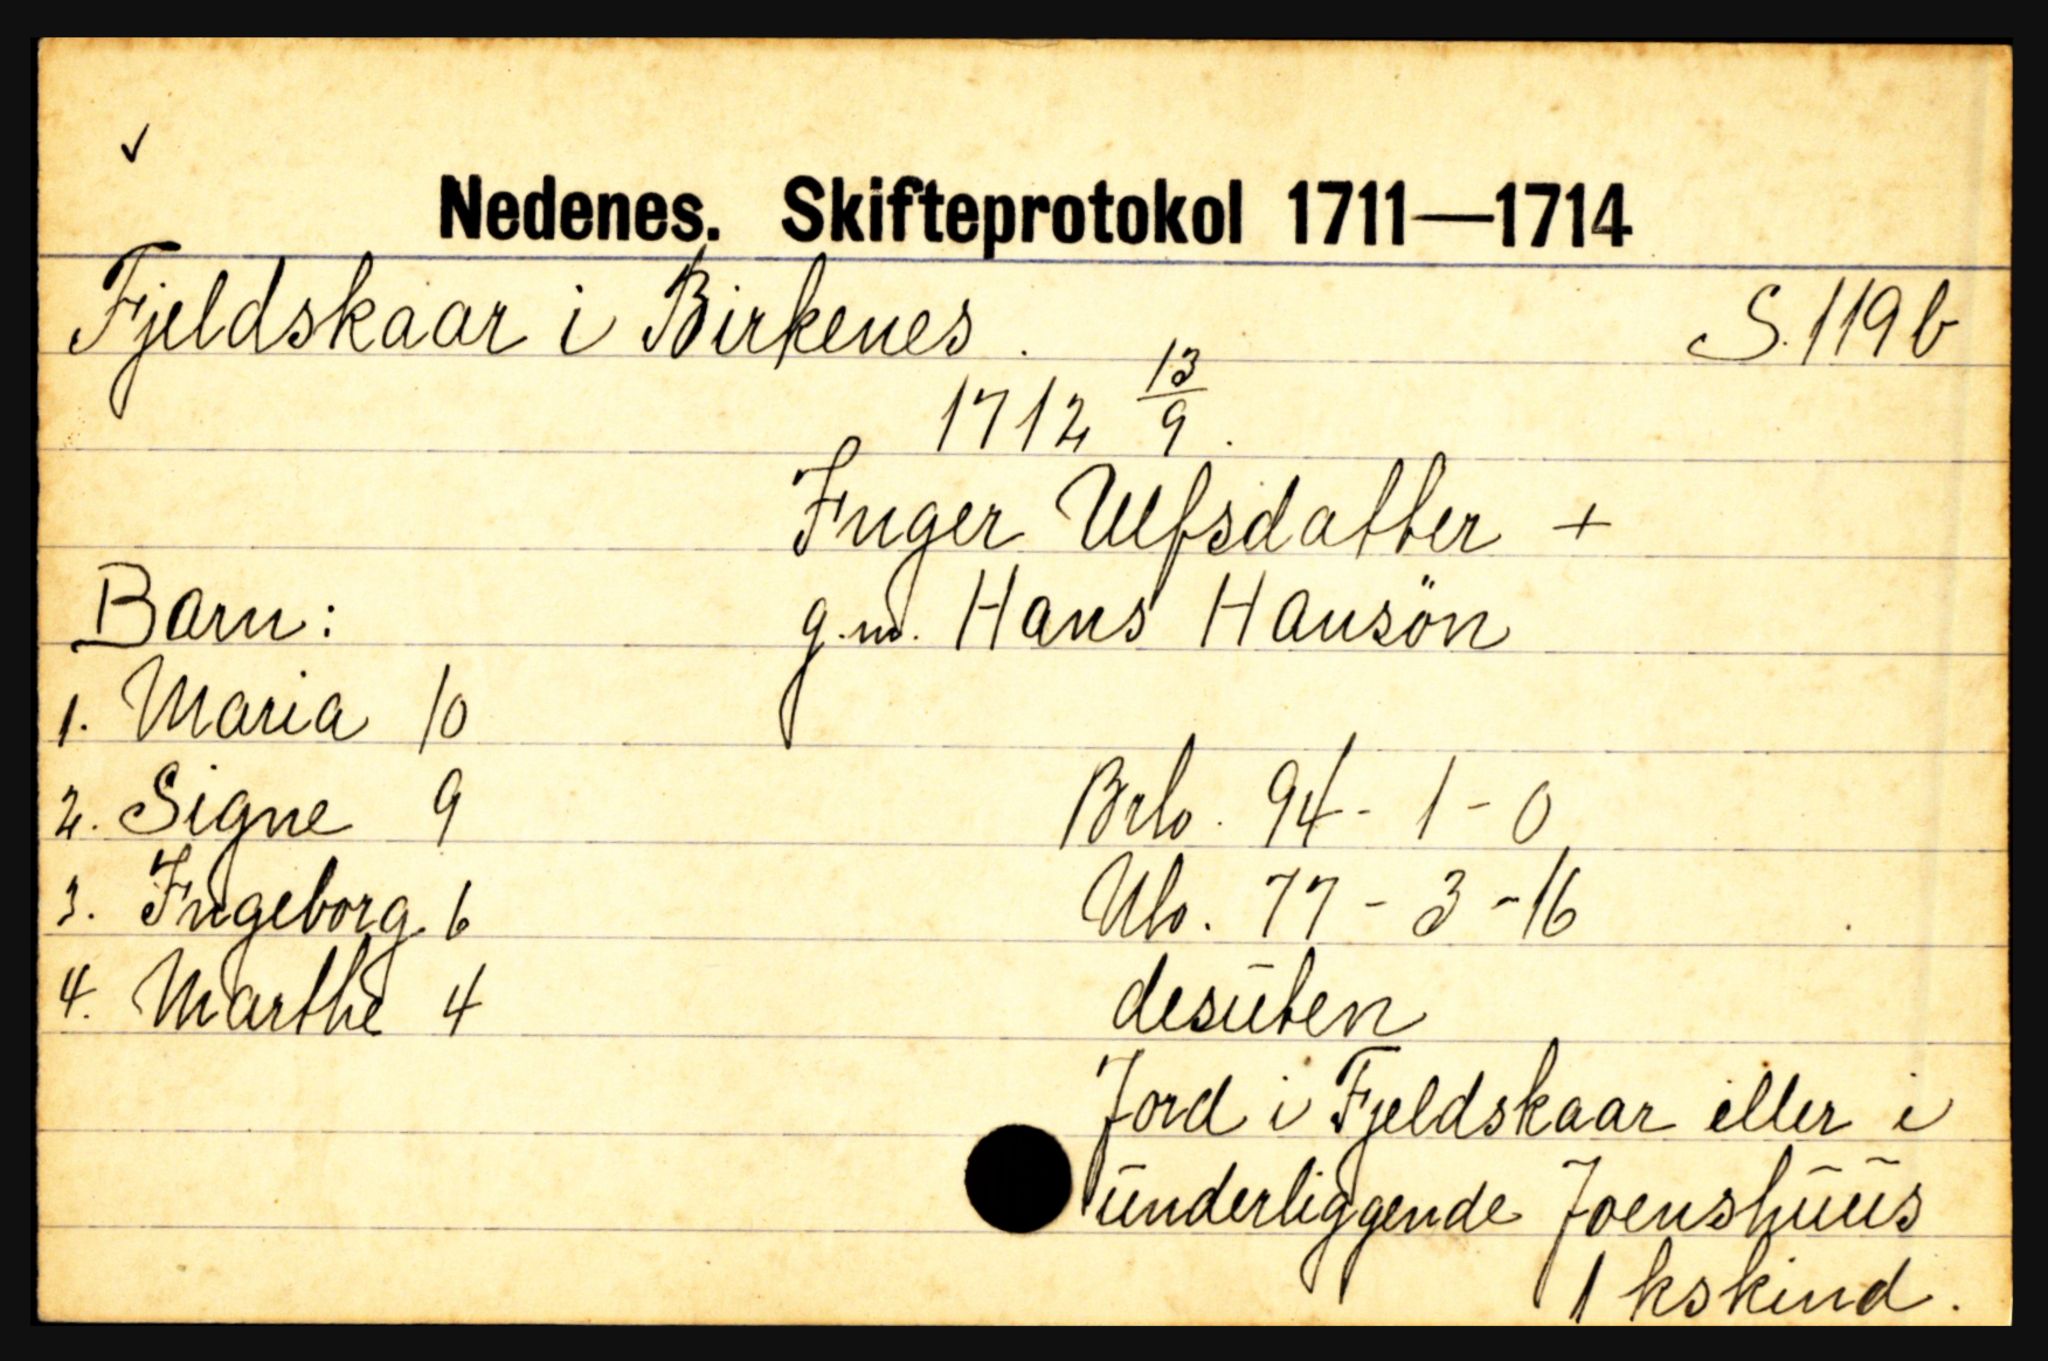 ✓
Nedenes. Skifteprotokol 1711—1714
Fjeldskaar i Birkenes. S. 119 b
1712 13/9.
Inger Ulfsdatter +
g.m. Hans Hansön
Barn:
1. Maria 10
2. Signe 9
3. Ingeborg 6
4. Marthe 4
Brlo. 94 - 1 - 0
Nlo. 77 - 3 - 16
desūten
Jord i Fjeldskaar eller i
ūnderliggende Joenshūūs
1 kskind.